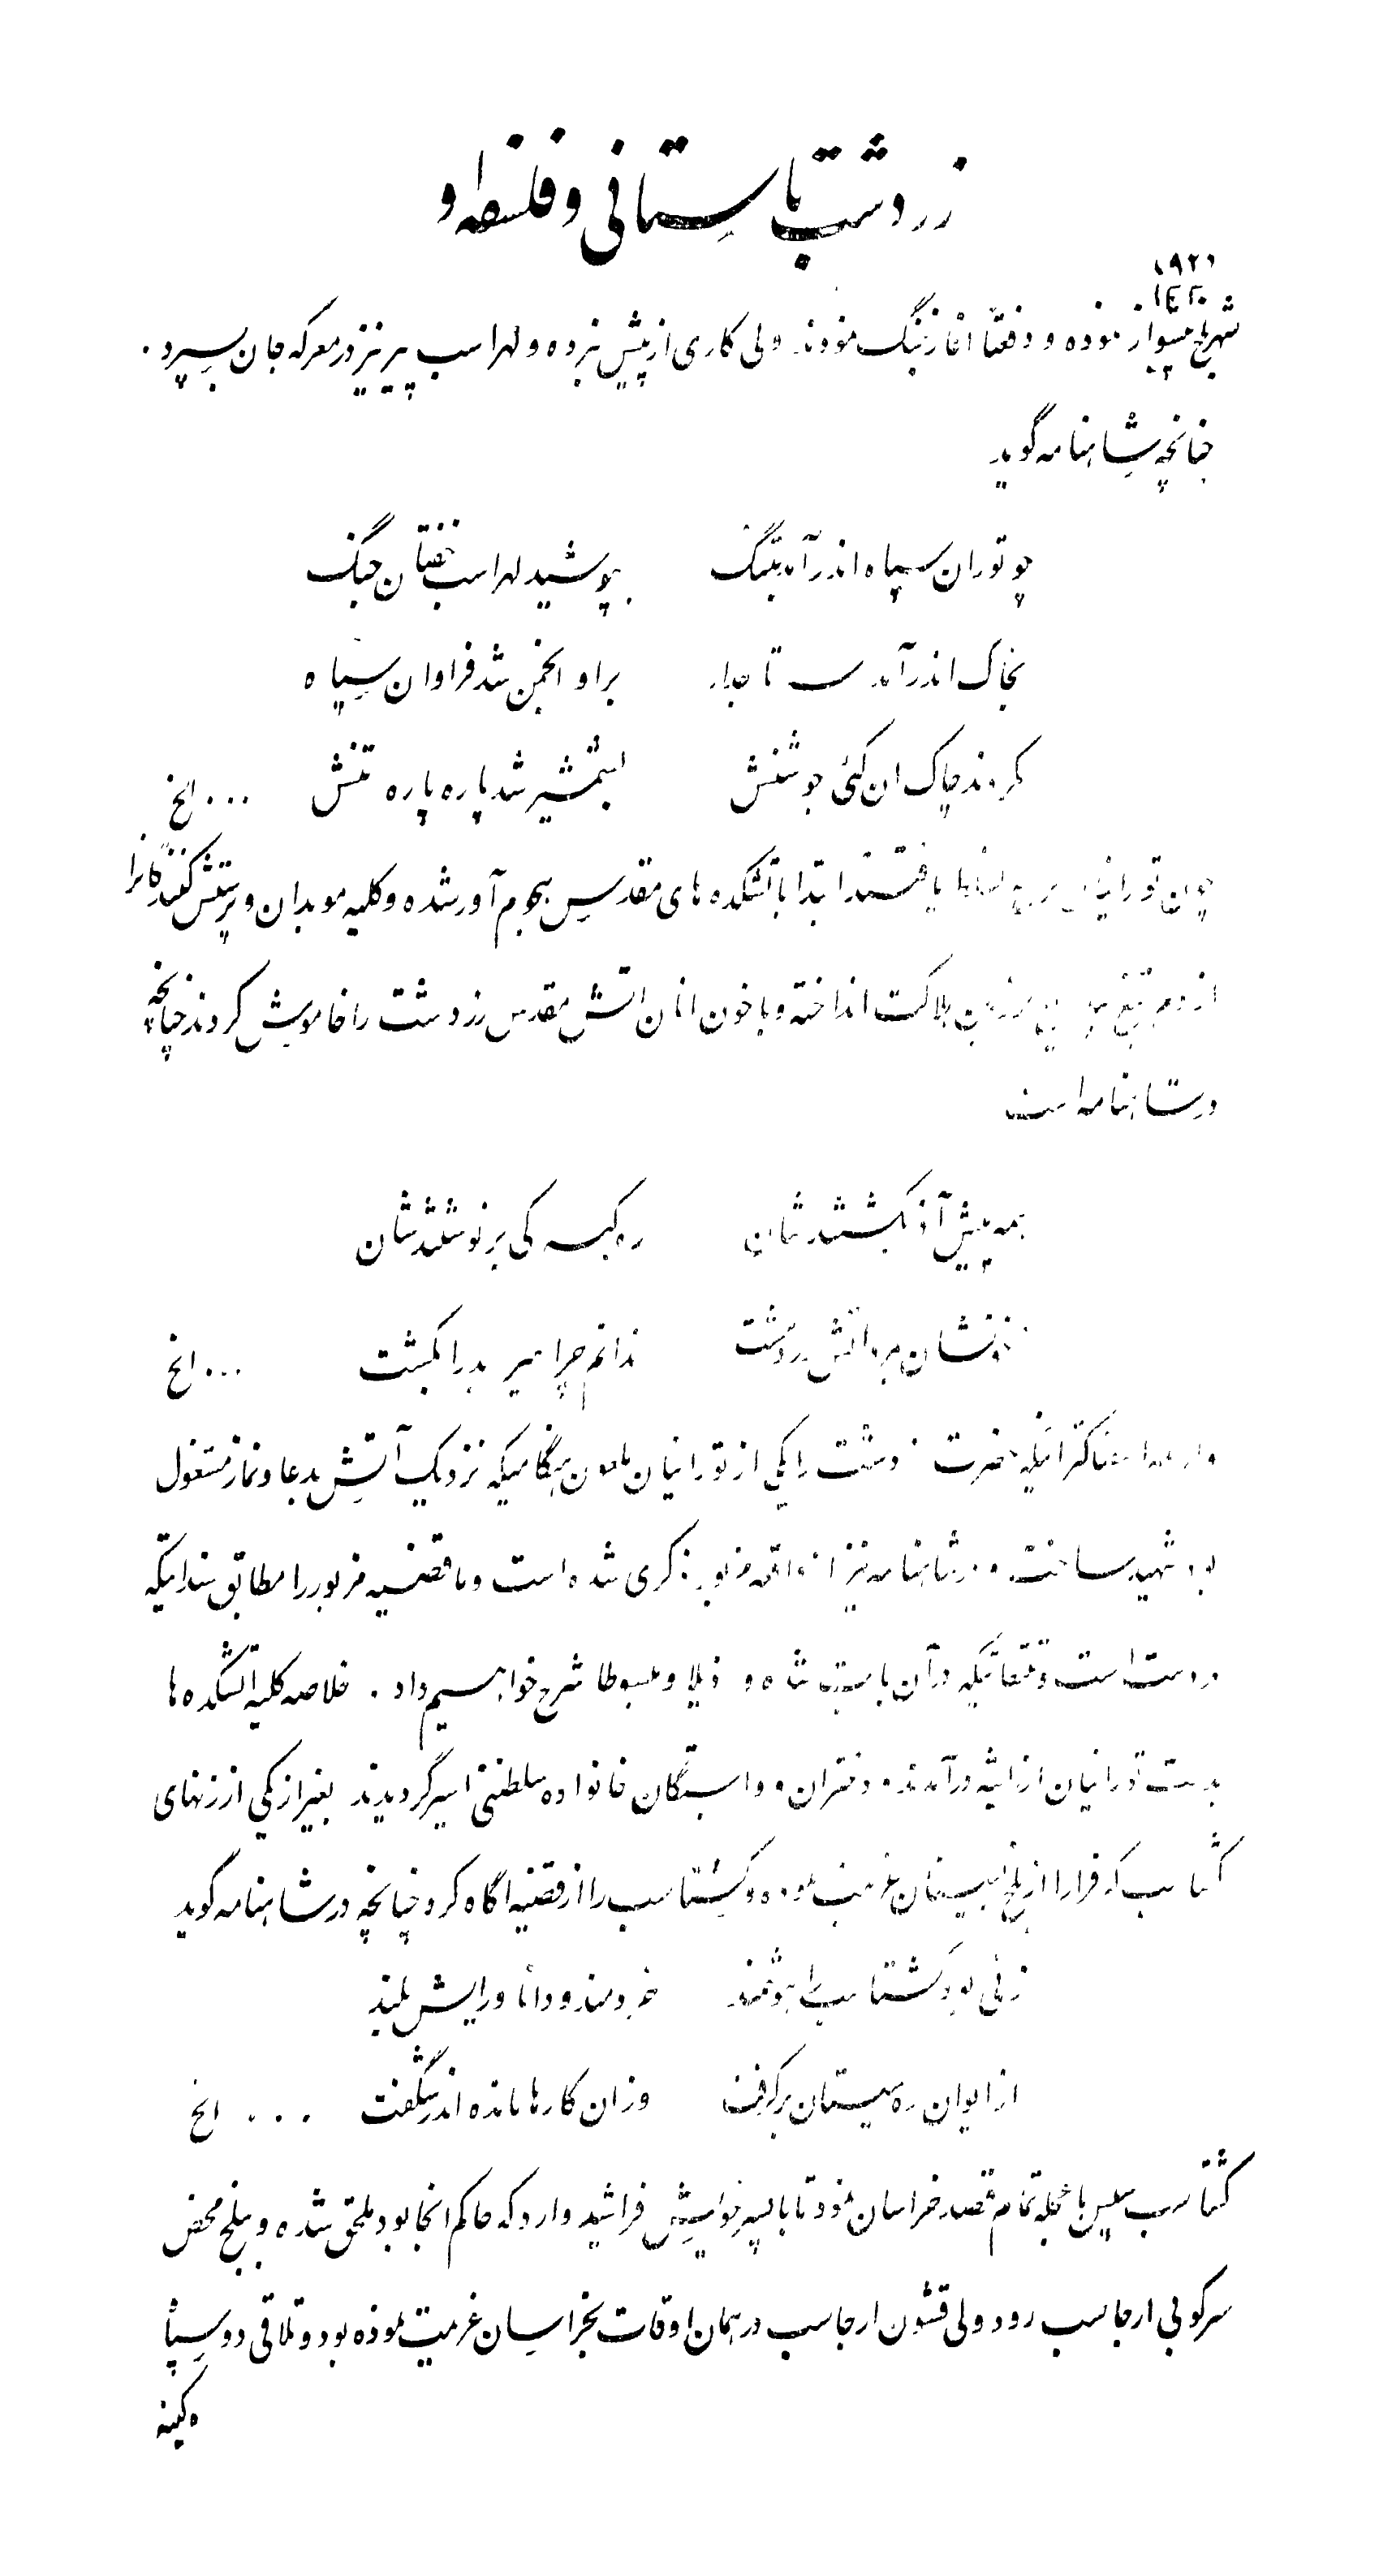 زردشت باستانی و فلسفه او
۱۹۲۱
شهر بلخ پیواز نموده و دفعتاً اغاز جنگ نمودند ولی کاری از پیش نبرده و لهراسب پیر نیز در معرکه جان بسپرد .
چنانچه شاهنامه گوید
چو توران سپاه اندر آمد بتنگ بپوشید لهراسب خفتان جنگ
بخاک اندر آمد سر تاجدار بر او انجمن شد فراوان سپاه
کردند چاک ان کئی جوشنش بشمشیر شد پاره پاره تنش ... الخ
چون تورانیان بر بلخ یافتند ابتدا باتشکده های مقدس هجوم آور شده و کلیه موبدان و پرستش کنندگانرا
از دم تیغ هلاکت انداخته و با خون انان اتش مقدس زردشت را خاموش کردند چنانچه
در شاهنامه است
همه پیش آذر بکشتندشان ره کی بر نوشتندشان
خونشان مرد اتش زردشت ندانم چرا هیربد را بکشت ... الخ
حضرت زردشت را یکی از تورانیان ملعون هنگامیکه نزدیک آتش بدعا و نماز مشغول
بود شهید ساخت و در شاهنامه نیز از واقعه مزبور ذکری شده است و ما قضیه مزبور را مطابق سندانیکه
در دست است و تحقیقاتیکه در آن بابت شده ذیلا و مبسوطا شرح خواهیم داد . خلاصه کلیه اتشکده ها
بدست تورانیان از اثیه درآمدند و دختران و وابستگان خانواده سلطنتی اسیر گردیدند بغیر از یکی از زنهای
گشتاسب که فرارا از بلخ بسیستان عزیمت نموده و گشتاسب را از قضیه اگاه کرد چنانچه در شاهنامه گوید
زنی بود گشتاسب را هوشمند خردمند و دانا و رایش بلند
از ایوان ره سیستان برگرفت وزان کارها مانده اندر شگفت ... الخ
گشتاسب سپس با عجله تمام قصد خراسان نمود تا با پسر خویش فراشید وارد که حاکم انجا بود ملحق شده و ببلخ محض
سرکوبی ارجاسب رود ولی قشون ارجاسب در همان اوقات بخراسان عزیمت نموده بود و تلاقی دو سپا
ه کینه